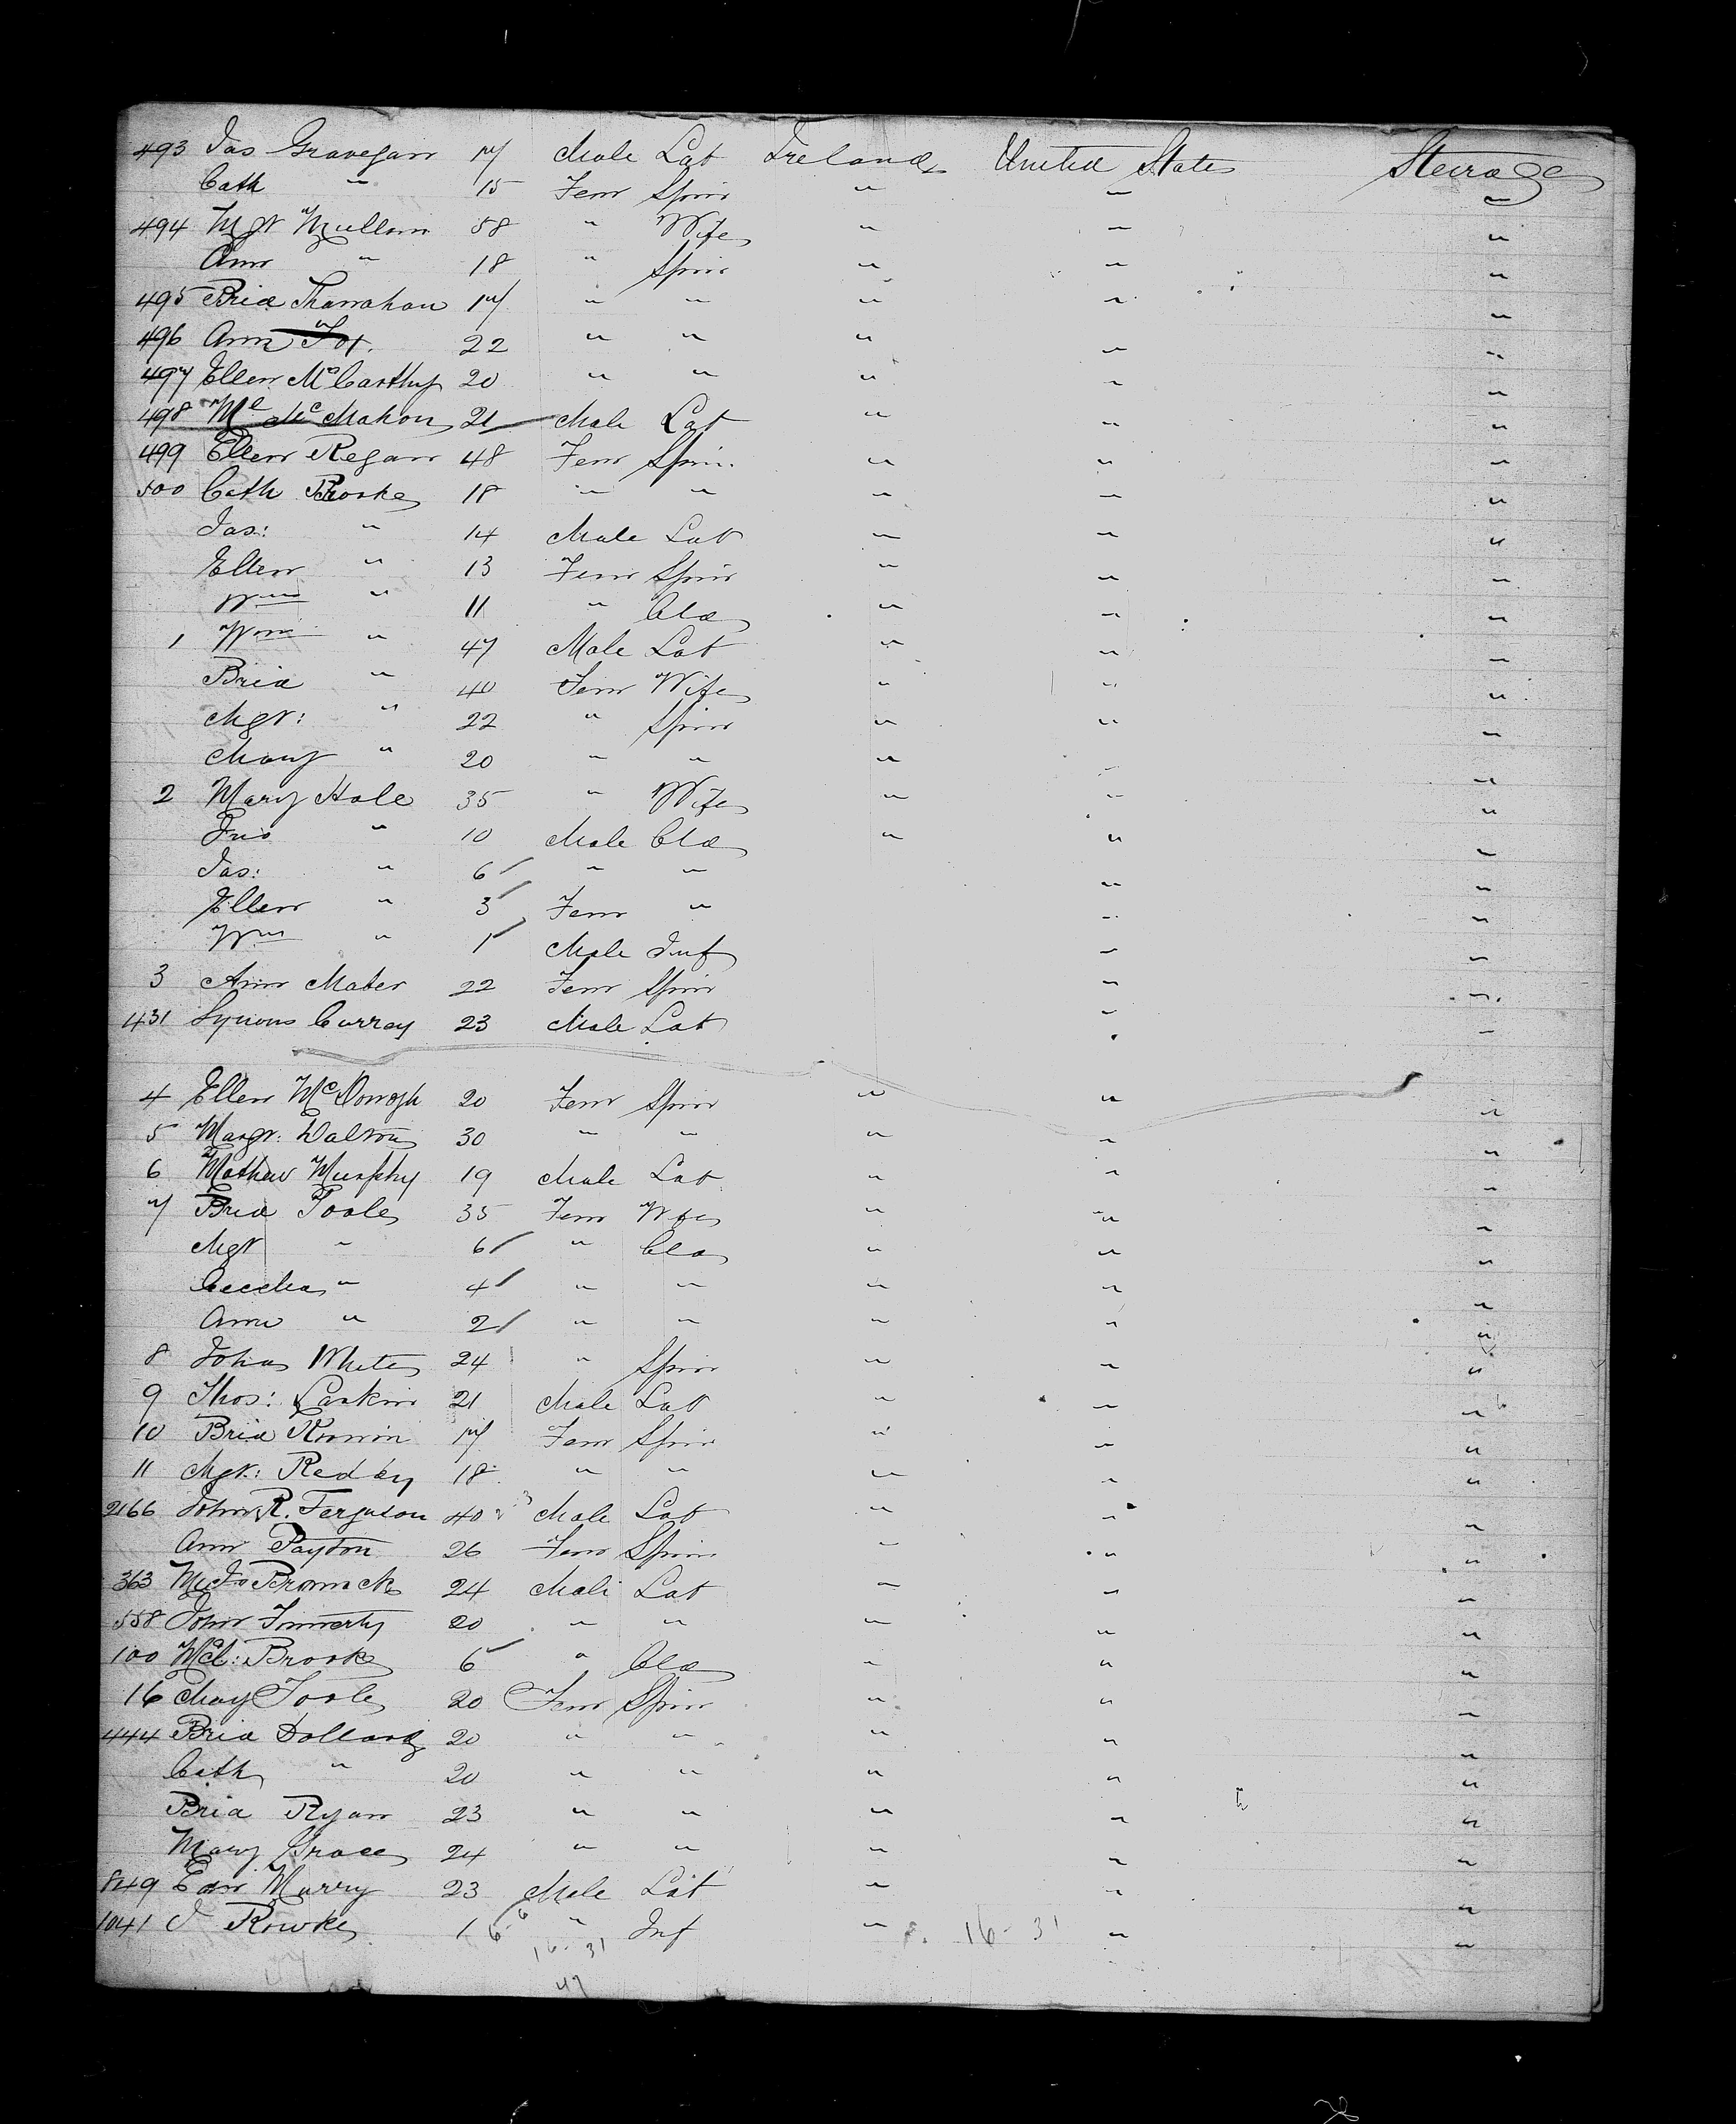 493 Jas Gravegan 17 Male Lab Ireland United States Steerage
Cath " 15 Fem Spin " " "
494 Mgt Mullen 58 " Wife " " "
Ann " 18 " Spin " " "
495 Brid Shanahan 17 " " " " "
496 Ann Fox 22 " " " " "
497 Ellen McCarthy 20 " " " " "
498 Ml McMahon 21 Male Lab " " "
499 Ellen Regan 48 Fem Spin " " "
500 Cath Brooke 18 " " " " "
Jas: " 14 Male Lab " " "
Ellen " 13 Fem Spin " " "
Wm " 11 " Cld " " "
1 Wm " 47 Male Lab " " "
Brid " 40 Fem Wife " " "
Mgt: " 22 " Spin " " "
Mary " 20 " " " " "
2 Mary Hale 35 " Wife " " "
Jno " 10 Male Cld " " "
Jas: " 6 " " " "
Ellen " 3 Fem " " "
Wm " 1 Male Inf " "
3 Ann Maher 22 Fem Spin " "
431 Curray 23 Male Lab " "
4 Ellen McDonogh 20 Fem Spin " " "
5 Margt: Dalton 30 " " " " "
6 Mathew Murphy 19 Male Lab " " "
7 Brid Toole 35 Fem Wife " " "
Mgt " 6 " Cld " " "
Cecelia " 4 " " " " "
Ann " 2 " " " " "
8 Joha White 24 " Spin " " "
9 Thos: Larkin 21 Male Lab " " "
10 Brid 17 Fem Spin " " "
11 Mgt: 18 " " " " "
2166 John R. Ferguson 40 Male Lab " " "
Ann Payton 26 Fem Spin " " "
363 24 Male Lab " " "
558 John 20 " " " " "
100 Ml: Brooke 6 " Cld " " "
16 May Toole 20 Fem Spin " " "
444 Brid Dollard 20 " " " " "
Cath " 20 " " " " "
Brid Ryan 23 " " " " "
Mary Grace 24 " " " " "
849 Edw Murry 23 Male Lab " " "
1041 J Rourke 1 " Inf " " "
16 - 31 16 - 31
47